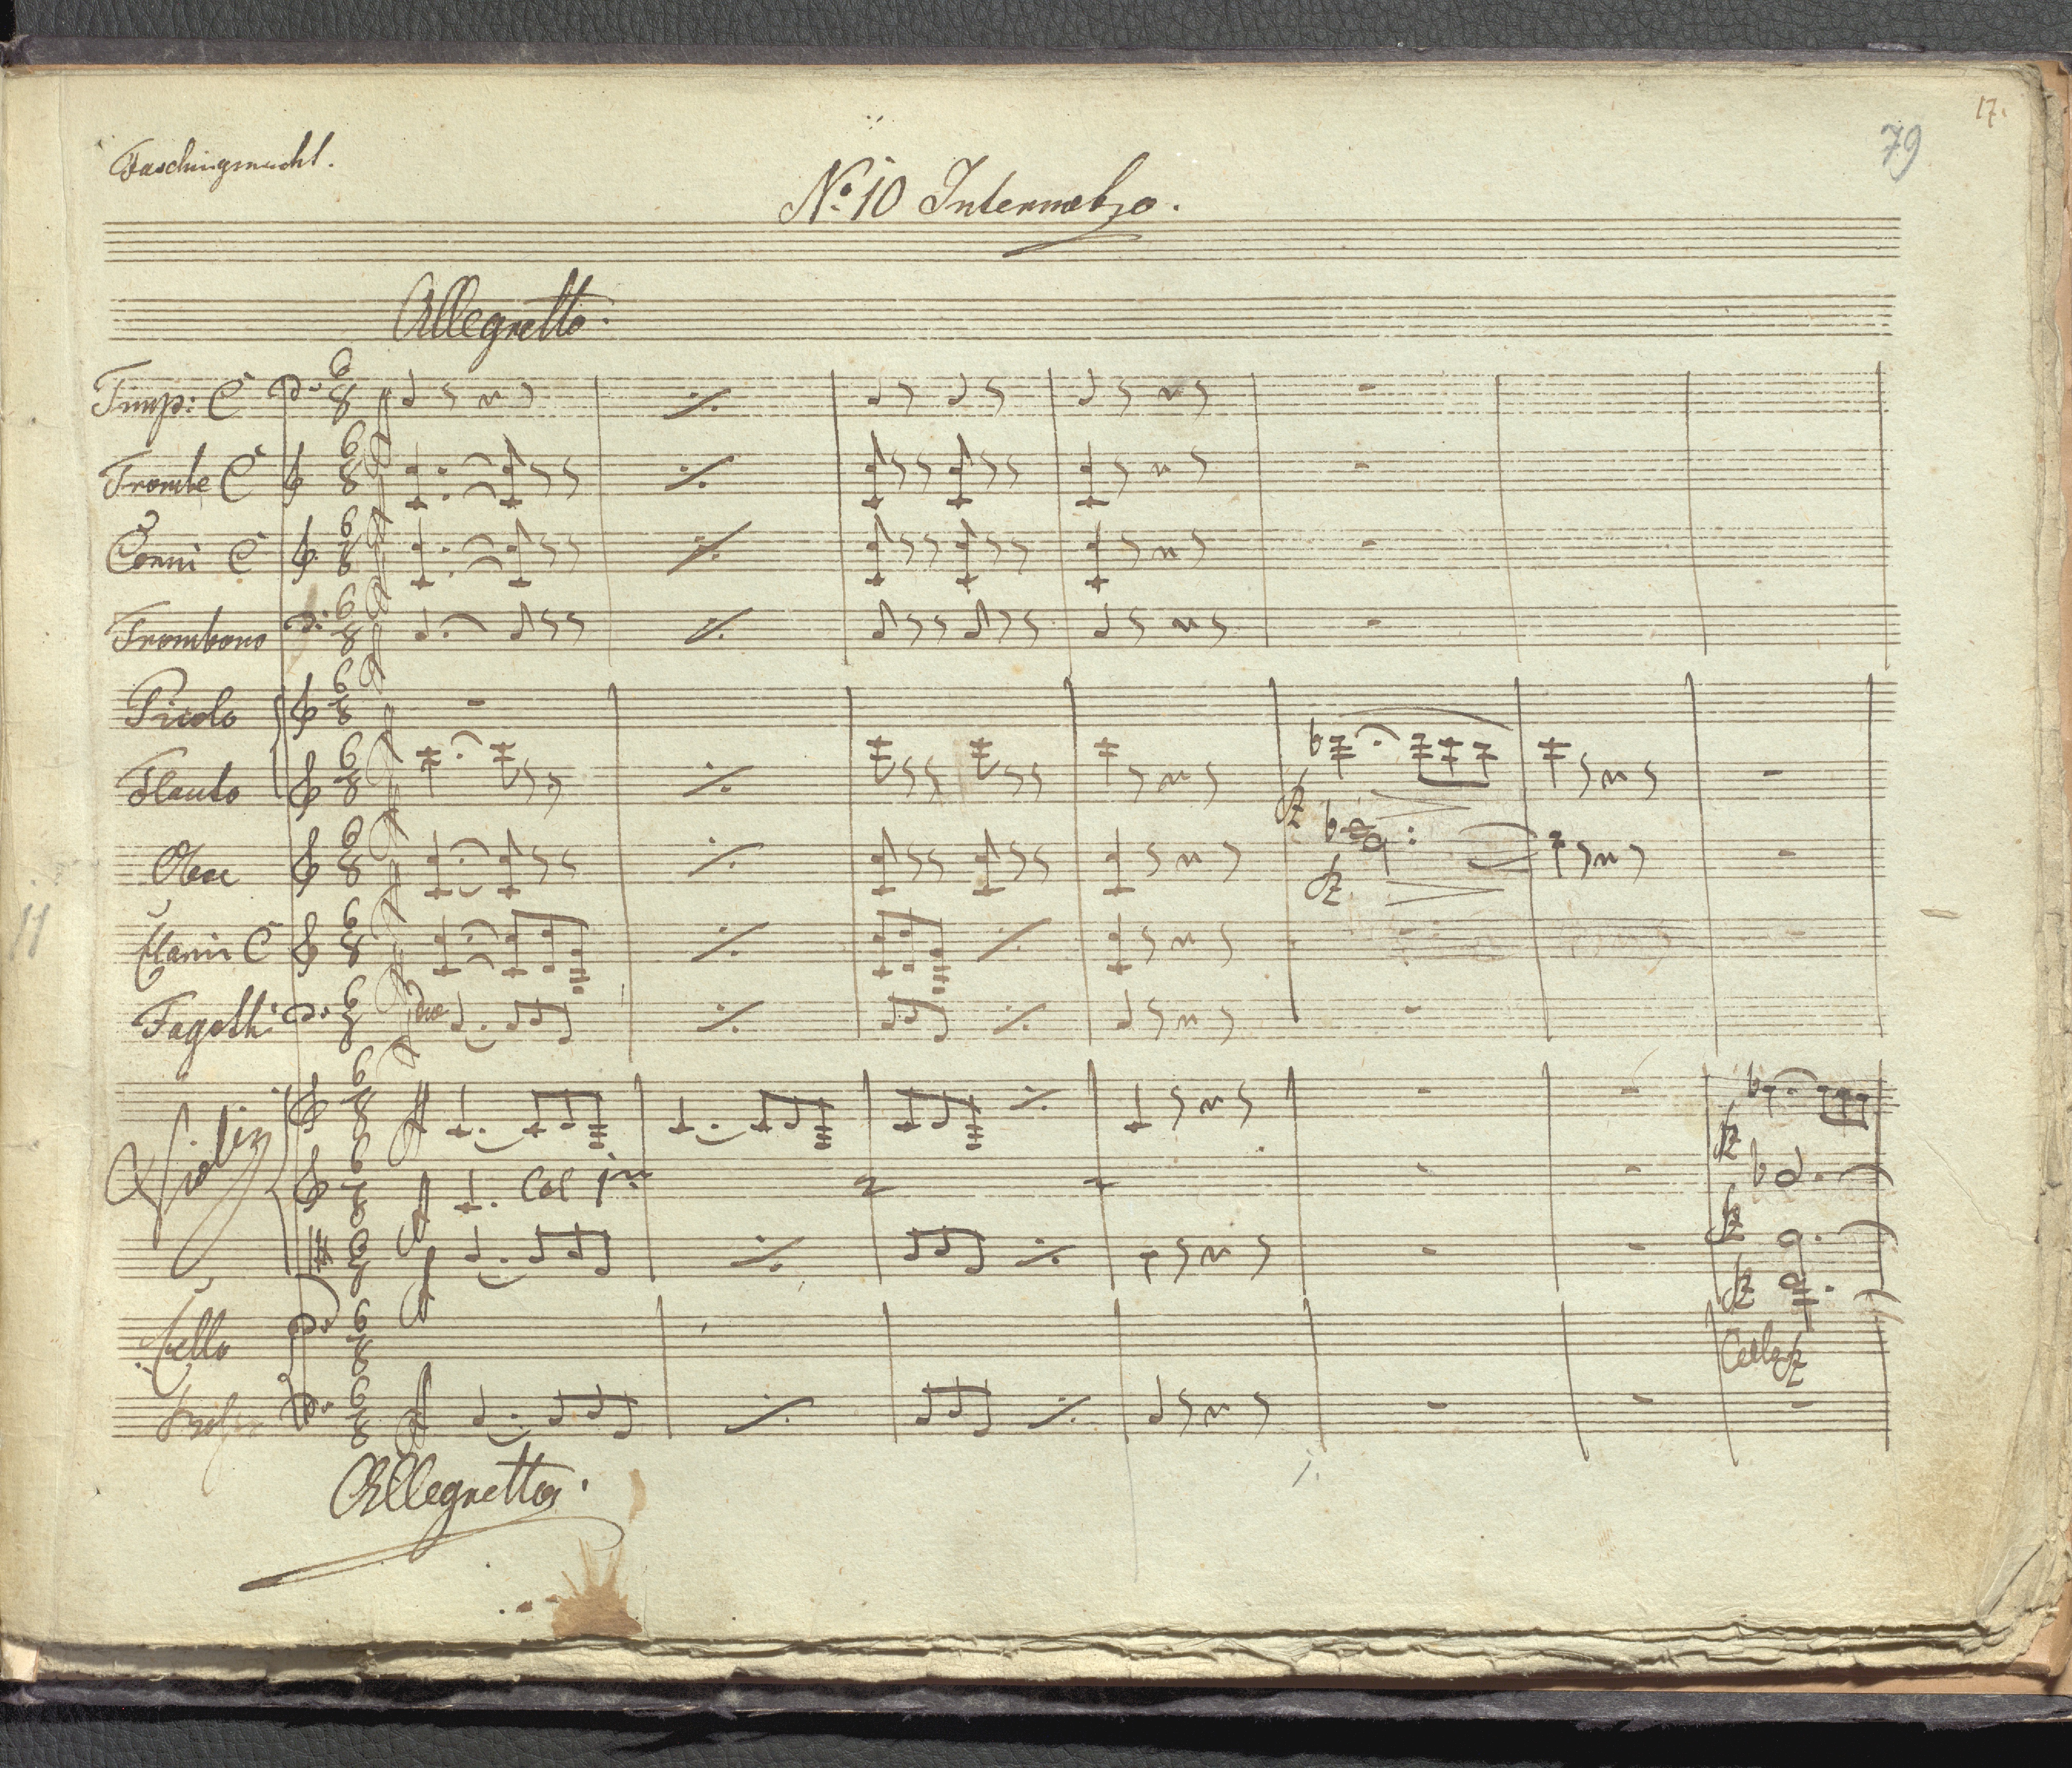 17.
79
Faschingsnacht.
No. 10 Intermetzo.
Allegretto.
Timp: C
Trombe C
Corni C
Trombono
Picolo
Flauto
Oboe
Clarin C
Fagotti
11
Violin
Col 1mo
Cello
Cello
Allegretto.